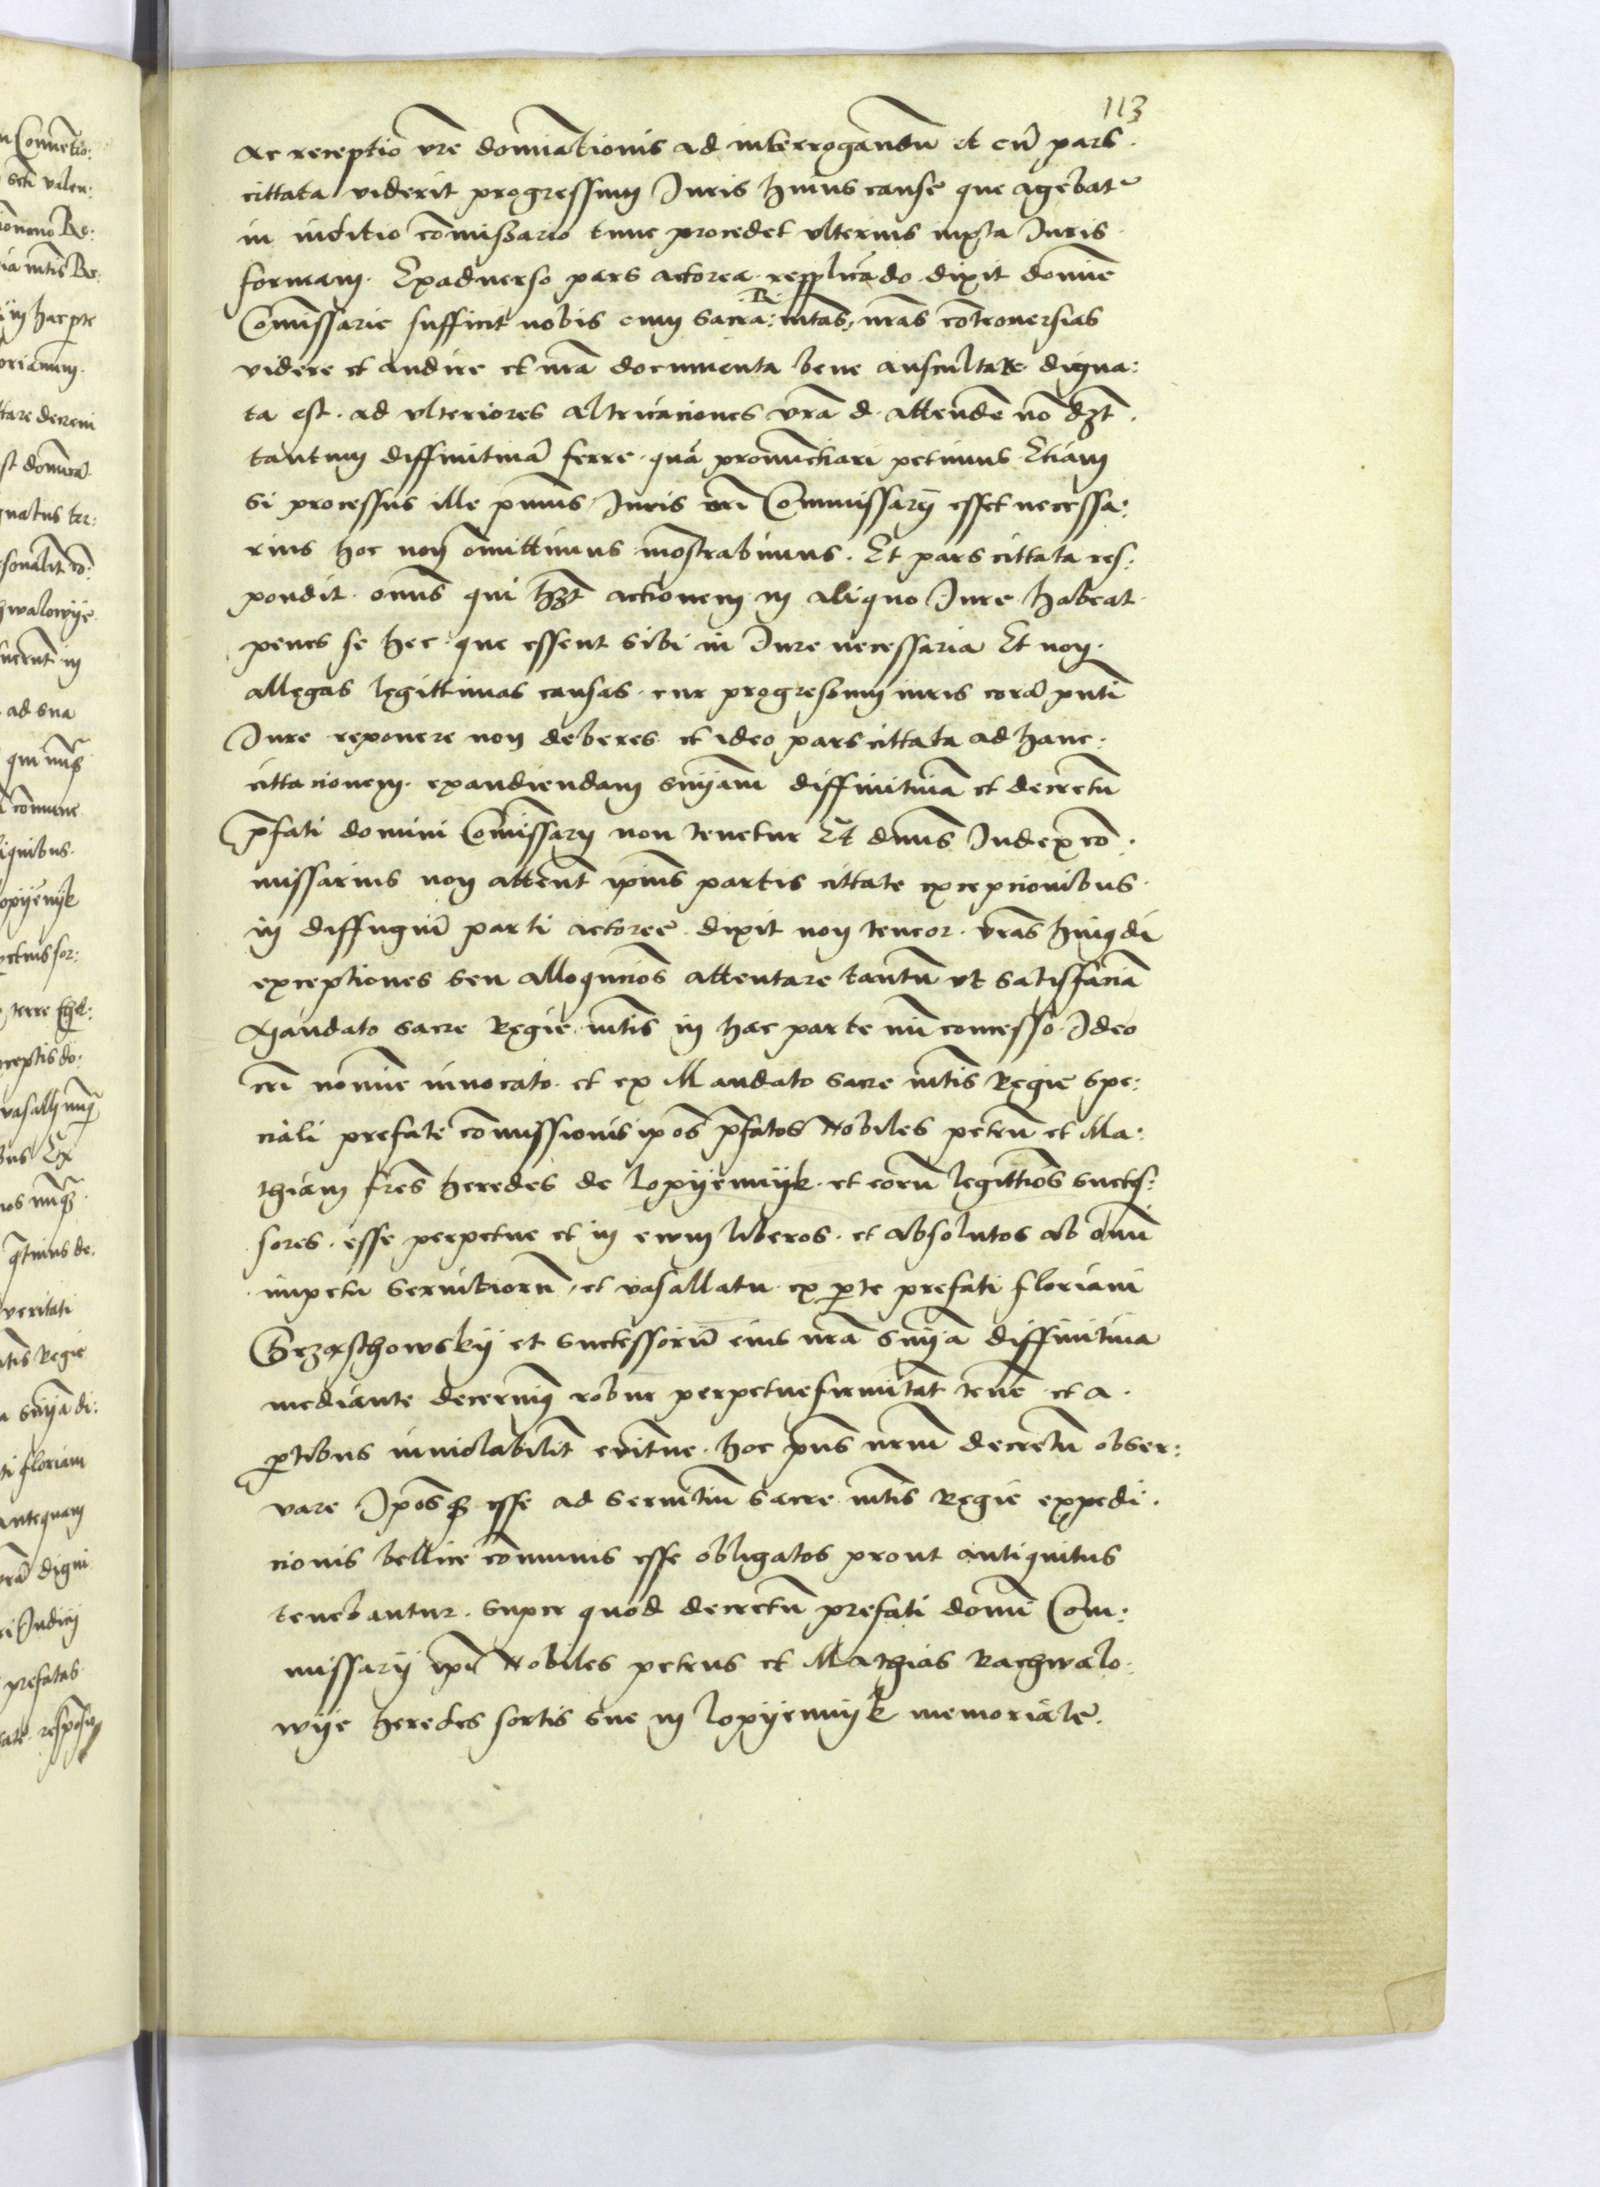 113
ac receptio vr̃e domĩationis ad interrogandũ et cũ pars
cittata viderit progressum Juris huius cause que agebatr
in iuditio com̃issario tunc procedet vlterius iuxta Juris
formam. Exadverso pars actorea replicãdo dixit domĩe
Com̃issarie sufficit nobis cum Sacra: R. mtãs, nr̃as cõtroversias
videre et audire et nr̃a documenta bene auscultare digna:
ta est. ad vlteriores altricaciones vr̃a d. attendẽ nõ dꝫt
tantum diffinitiuã ferre quã pronunctiari petimus Etiam
Si processus ille primus Juris vr̃i Commissarÿ esset necessa:
rius hoc non omittimus mostrabimus. Et pars cittata res:
pondit. om̃s qui hꝫt actionem in aliquo Jure habeat
penes se hec que essent sibi in Jure necessaria Et non
allegas legittimas causas. cur progressum iuris corã pñti
Jure reponere non deberes et ideo pars cittata ad hanc:
cittacionem. exaudiendam snÿam diffinitiuã et decretũ
p̃fati domini Com̃issarÿ non tenetur Et dñus Judex cõ:
missarius non attent ip̃ius partis cittate excepcionibus
in diffugiũ parti actoree dixit non teneor. vr̃as huiꝰdi
exceptiones seu alloqucio͂s attentare tantũ vt satisfaciã
Mandato sacre Regie mtis in hac parte mi concesso Ideo
xr̃i nomĩe invocato. et ex Mandato sacre mtis Regie spe:
ciali prefate com̃issionis ip̃os p̃fatos Nobiles petrũ et Ma:
thiam fr̃es heredes de lopÿennÿk. et eorũ legittimõs succes:
sores. esse perpetue et in ewm liberos. et absolutos ab om̃i
impetu servitiorũ, et vasallatu ex p̱te prefati floriani
Grzaschowskÿ et successorũ eius nr̃a snÿa diffinitiua
mediante decernim̃ robur perpetue firmitat̃ tenẽ et a
p̱tibus inviolabilit̃ evitne. hoc pñs nr̃m decretũ obser:
vare Jp̃osqꝫ esse ad servitiũ sacre mtis Regie expedi:
cionis bellice com̃unis esse obligatos prout antiquitus
tenebantur. super quod decretũ prefati domĩ Com:
missarÿ ip̃i Nobiles petrus et Mathias Rachwalo:
wÿe heredes sortis sue in lopÿennÿk memoriale.